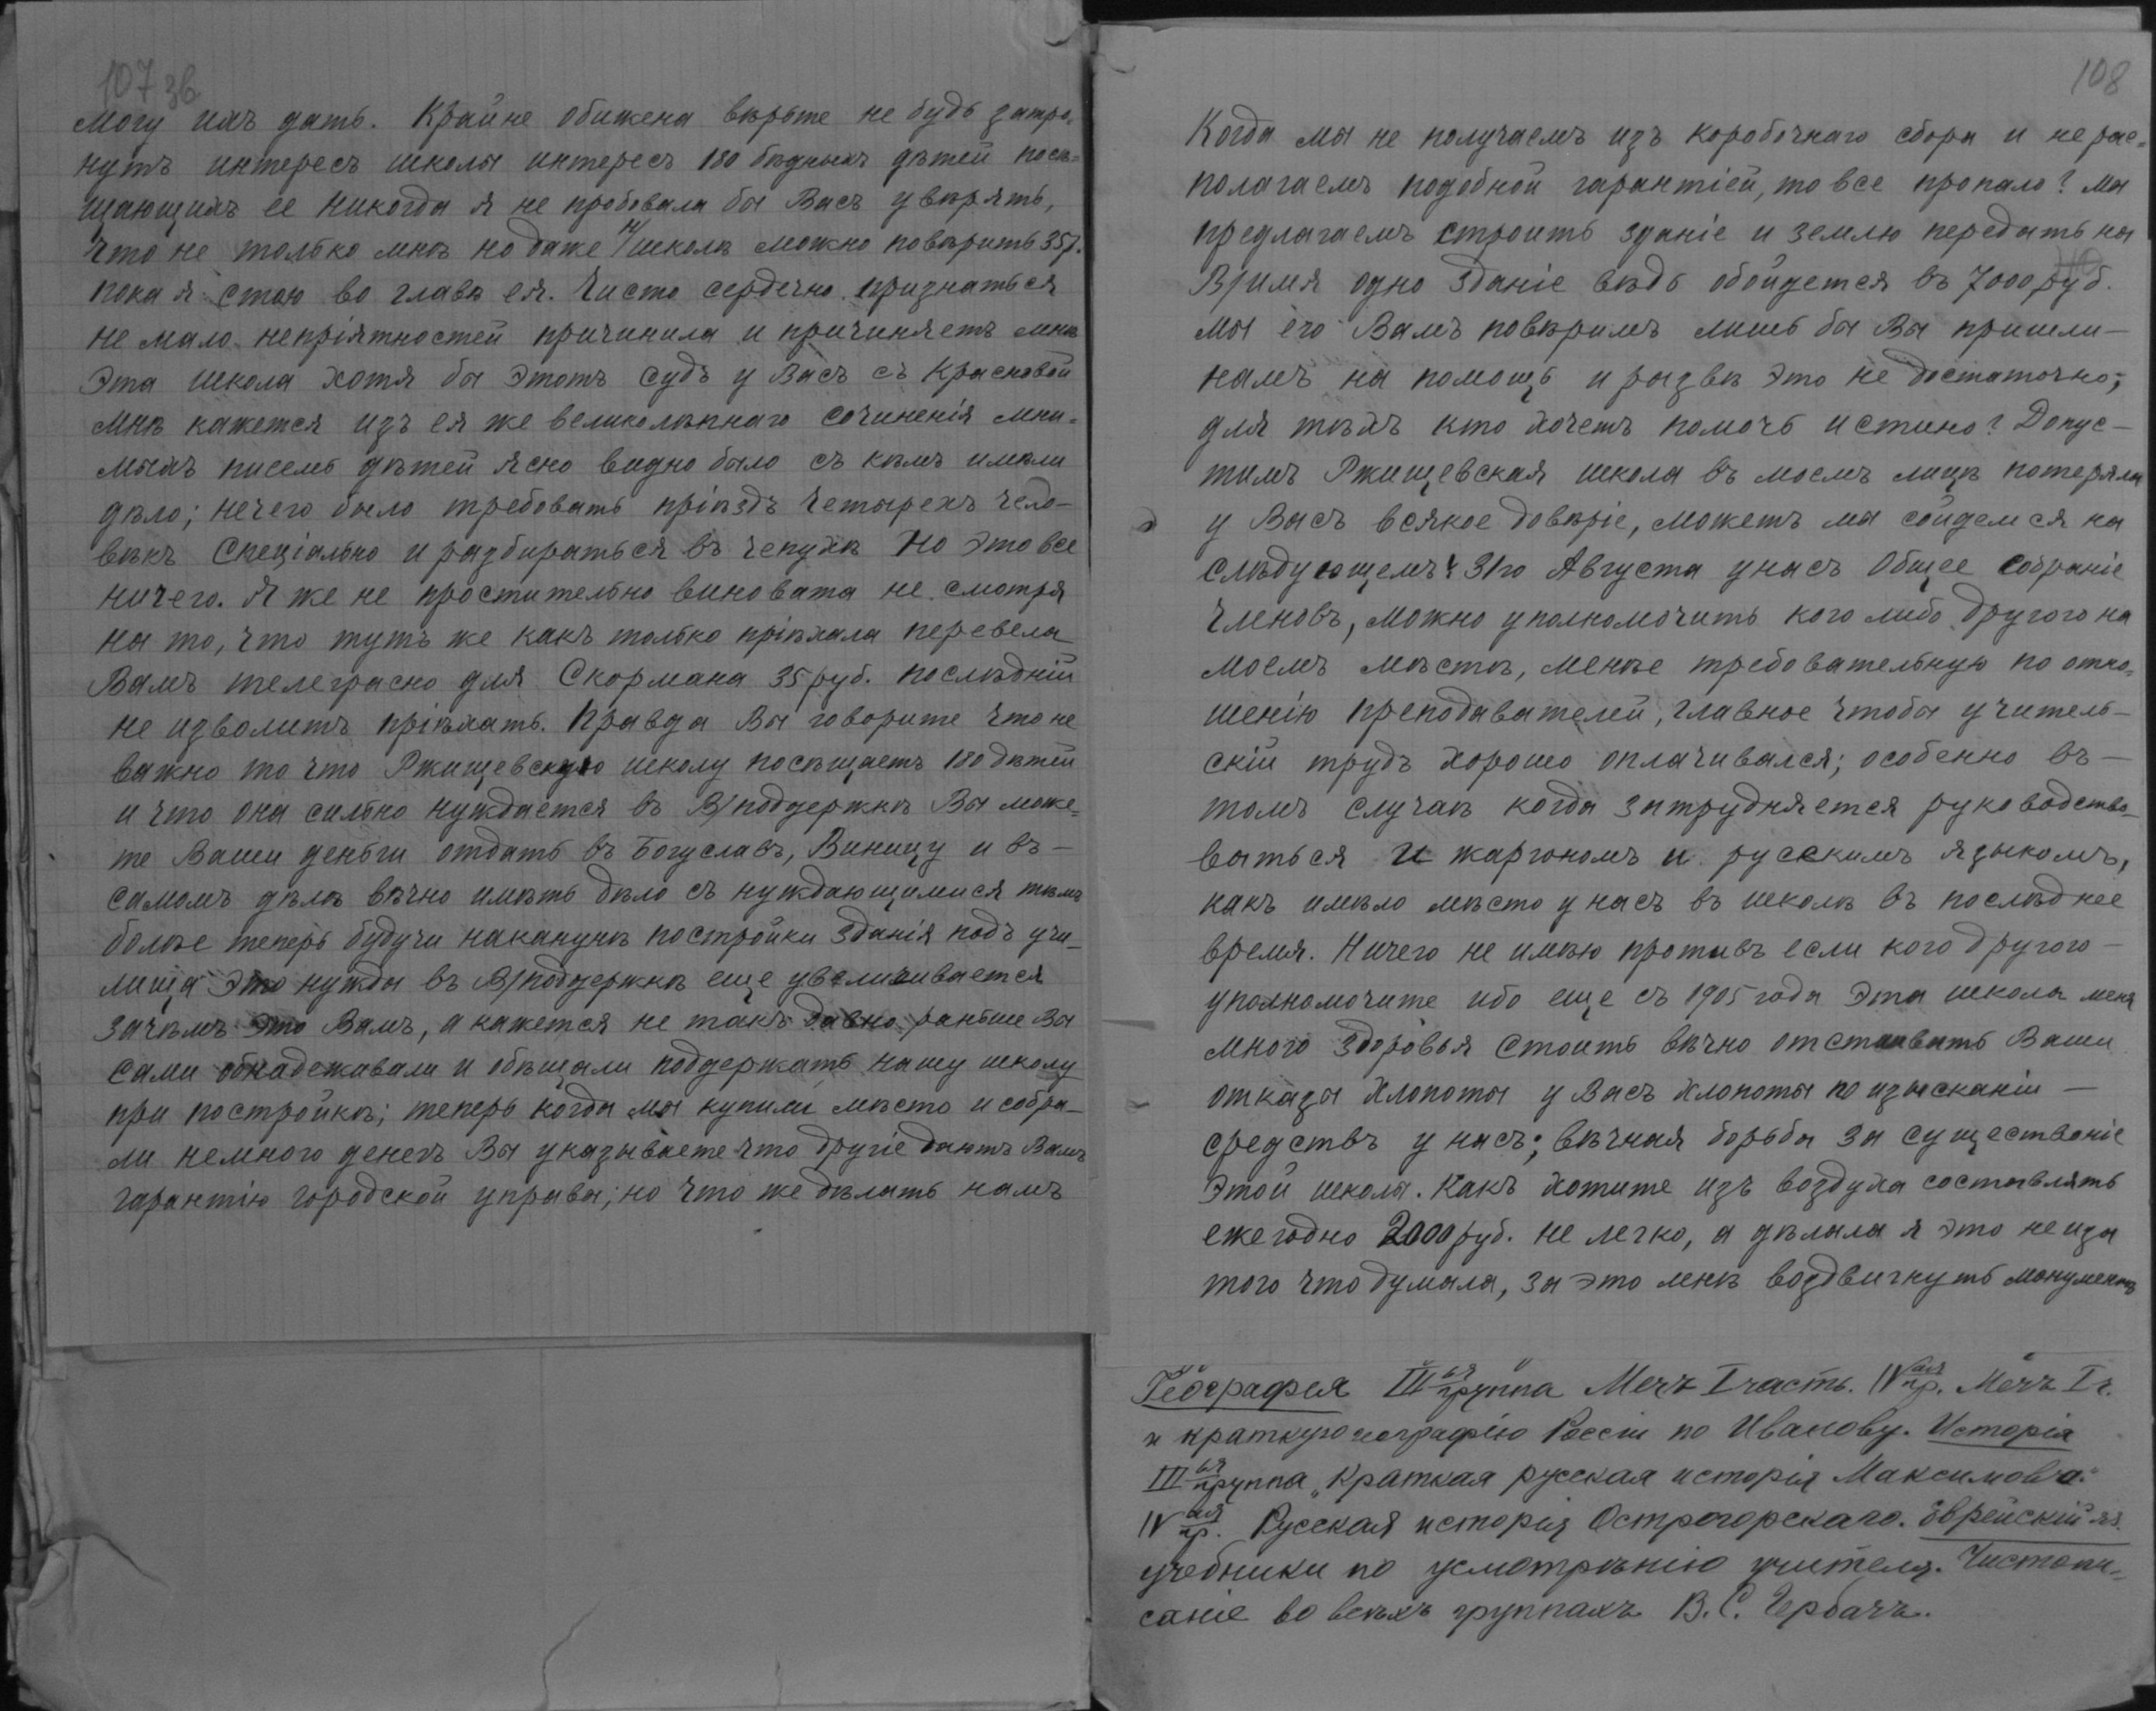 107 зв
могу имъ дать. Крайне обижена вѣрьте не будь затро-
нутъ интересъ школы интересъ 180 бѣдныхъ дѣтей посѣ=
щающихъ ее никогда я не пробовала бы Васъ увѣрять,
что не только мнѣ но даже н/школѣ можно повѣрить 35р.
пока я стою во главѣ ея. Чисто сердечно признаться
не мало непріятностей причинила и причиняетъ мнѣ
эта школа хотя бы этотъ судъ у Васъ съ Красновой
мнѣ кажется изъ ея же великолѣпнаго сочиненія мни-
мыхъ писемъ дѣтей ясно видно было съ кѣмъ имѣли
дѣло; нечего было требовать пріѣздъ четырехъ чело-
вѣкъ спеціально и разбираться въ чепухѣ Но это все
ничего. Я же не простительно виновата не смотря
на то, что тутъ же какъ только пріѣхала перевела
Вамъ телеграсно для Скормана 35 руб. послѣдній
не изволитъ пріѣхать. Правда Вы говорите что не
важно то что Ржищевскую школу посѣщаетъ 180 дѣтей
и что она сильно нуждается въ В/поддержкѣ Вы може=
те Ваши деньги отдать въ Богуславъ, Виницу и въ—
самомъ дѣлѣ вѣчно имѣть дѣло съ нуждающимися тѣмъ
болѣе теперь будучи наканунѣ постройки зданія подъ учи-
лища это нужды въ В/поддержкѣ еще увеличивается
зачѣмъ это Вамъ, а кажется не такъ давно раньше Вы
сами обнадеживали и обѣщали поддержать нашу школу
при постройкѣ; теперь когда мы купили мѣсто и собра-
ли немного денегъ Вы указываете что другіе даютъ Вамъ
гарантію городской управы; но что же дѣлать намъ
108
Когда мы не получаемъ изъ коробочнаго сбора и не рас=
полагаемъ подобной гарантіей, то все пропало? Мы
предлагаемъ строить зданіе и землю передать на
В/имя одно зданіе вѣдь обойдется въ 7000 руб.
мы его Вамъ повѣримъ лишь бы Вы пришли—
намъ на помощь и развѣ это не достаточно;
для тѣхъ кто хочетъ помочь истино? Допус—
тимъ Ржищевская школа въ моемъ лицѣ потеряла
у Васъ всякое довѣріе, можетъ мы сойдемся на
слѣдующемъ: 31го Августа у насъ Общее собраніе
членовъ, можно уполномочить кого либо другого на
моемъ мѣстѣ, менѣе требовательную по отно-
шенію преподавателей, главное чтобы учитель—
скій трудъ хорошо оплачивался; особенно въ—
томъ случаѣ когда затрудняется руководство-
ваться и жаргономъ и русскимъ языкомъ,
какъ имѣло мѣсто у насъ въ школѣ въ послѣднее
время. Ничего не имѣю противъ если кого другого—
уполномочите ибо еще съ 1905 года эта школа меня
много здоровья стоитъ вѣчно отстаивать Ваши
отказы хлопоты у Васъ хлопоты по изысканіи—
средствъ у насъ; вѣчная борьба за существоніе
этой школы. Какъ хотите изъ воздуха составлять
ежегодно 2000 руб. не легко, а дѣлала я это не иза
того что думала, за это мнѣ воздвигнутъ монументъ
Географія III ья группа Мечъ I часть. IV ая гр. Мечъ I ч.
и краткую географію Россіи по Иванову. Исторія
III ья группа „Краткая русская исторія Максимова."
IV ая гр. Русская исторія Острогорскаго. Еврейскій яз.
учебники по усмотрѣнію учителя. Чистопи-
саніе во всѣхъ группахъ В. С. Гербачъ.